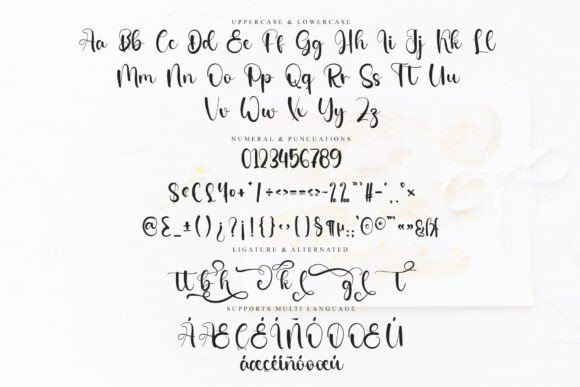 UPPERCASE & LOWERCASE
Aa Bb Cc Dd Ee Ff Gg Hh Ii Jj Kk Ll
Mm Nn Oo Pp Qq Rr Ss Tt Uu
Vv Ww Xx Yy Zz
NUMERAL & PUNCTUATIONS
0123456789
LIGATURE & ALTERNATED
SUPPORTS MULTI LANGUAGE
ÁÆÇÉÍÑÓØŒÚ
áæçéíñóøœú